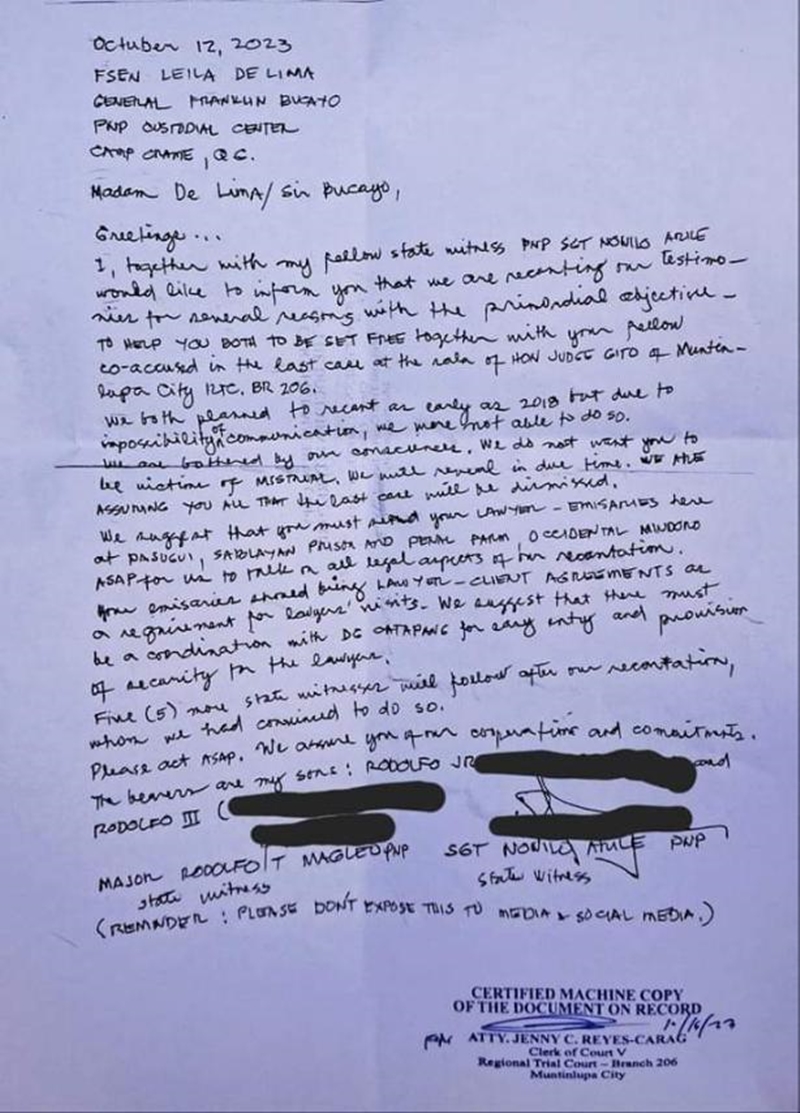 October 12, 2023
FSEN LEILA DE LIMA
GENERAL FRANKLIN BUCAYO
PNP CUSTODIAL CENTER
CAMP CRAME, Q.C.
Madam De Lima/ Sir Bucayo,
Greetings...
I, together with my fellow state witness PNP SGT NONILO ARILE
would like to inform you that we are recanting our testimo-
nies for several reasons with the primordial objective -
TO HELP YOU BOTH TO BE SET FREE together with your fellow
co-accused in the last case at the sala of HON JUDGE GITO of Muntin-
lupa City RTC, BR 206.
We both planned to recant as early as 2018 but due to
impossibility of communication, we were not able to do so.
We are bothered by our consciences. We do not want you to
be victims of MISTRIAL. We will reveal in due time. WE ARE
ASSURING YOU ALL THAT the last case will be dismissed.
We suggest that you must send your LAWYER - EMISARIES here
at PASUGUI, SABLAYAN PRISON AND PENAL FARM, OCCIDENTAL MINDORO
ASAP for us to talk on all legal aspects of our recantation.
Your emisaries should bring LAWYER - CLIENT AGREEMENTS as
a requirement for lawyers' visits. We suggest that there must
be a coordination with DG CATAPANG for easy entry and provision
of security for the lawyers.
Five (5) more state witnesses will follow after our recantation,
whom we had convinced to do so.
Please act ASAP. We assure you of our cooperations and commitments.
The bearers are my sons: RODOLFO JR and
RODOLFO III (
MAJOR RODOLFO T MAGLEO PNP SGT NONILO ARILE PNP
state witness state witness
(REMINDER : PLEASE DON'T EXPOSE THIS TO MEDIA & SOCIAL MEDIA.)
CERTIFIED MACHINE COPY
OF THE DOCUMENT ON RECORD
ATTY. JENNY C. REYES-CARAG
Clerk of Court V
Regional Trial Court – Branch 206
Muntinlupa City